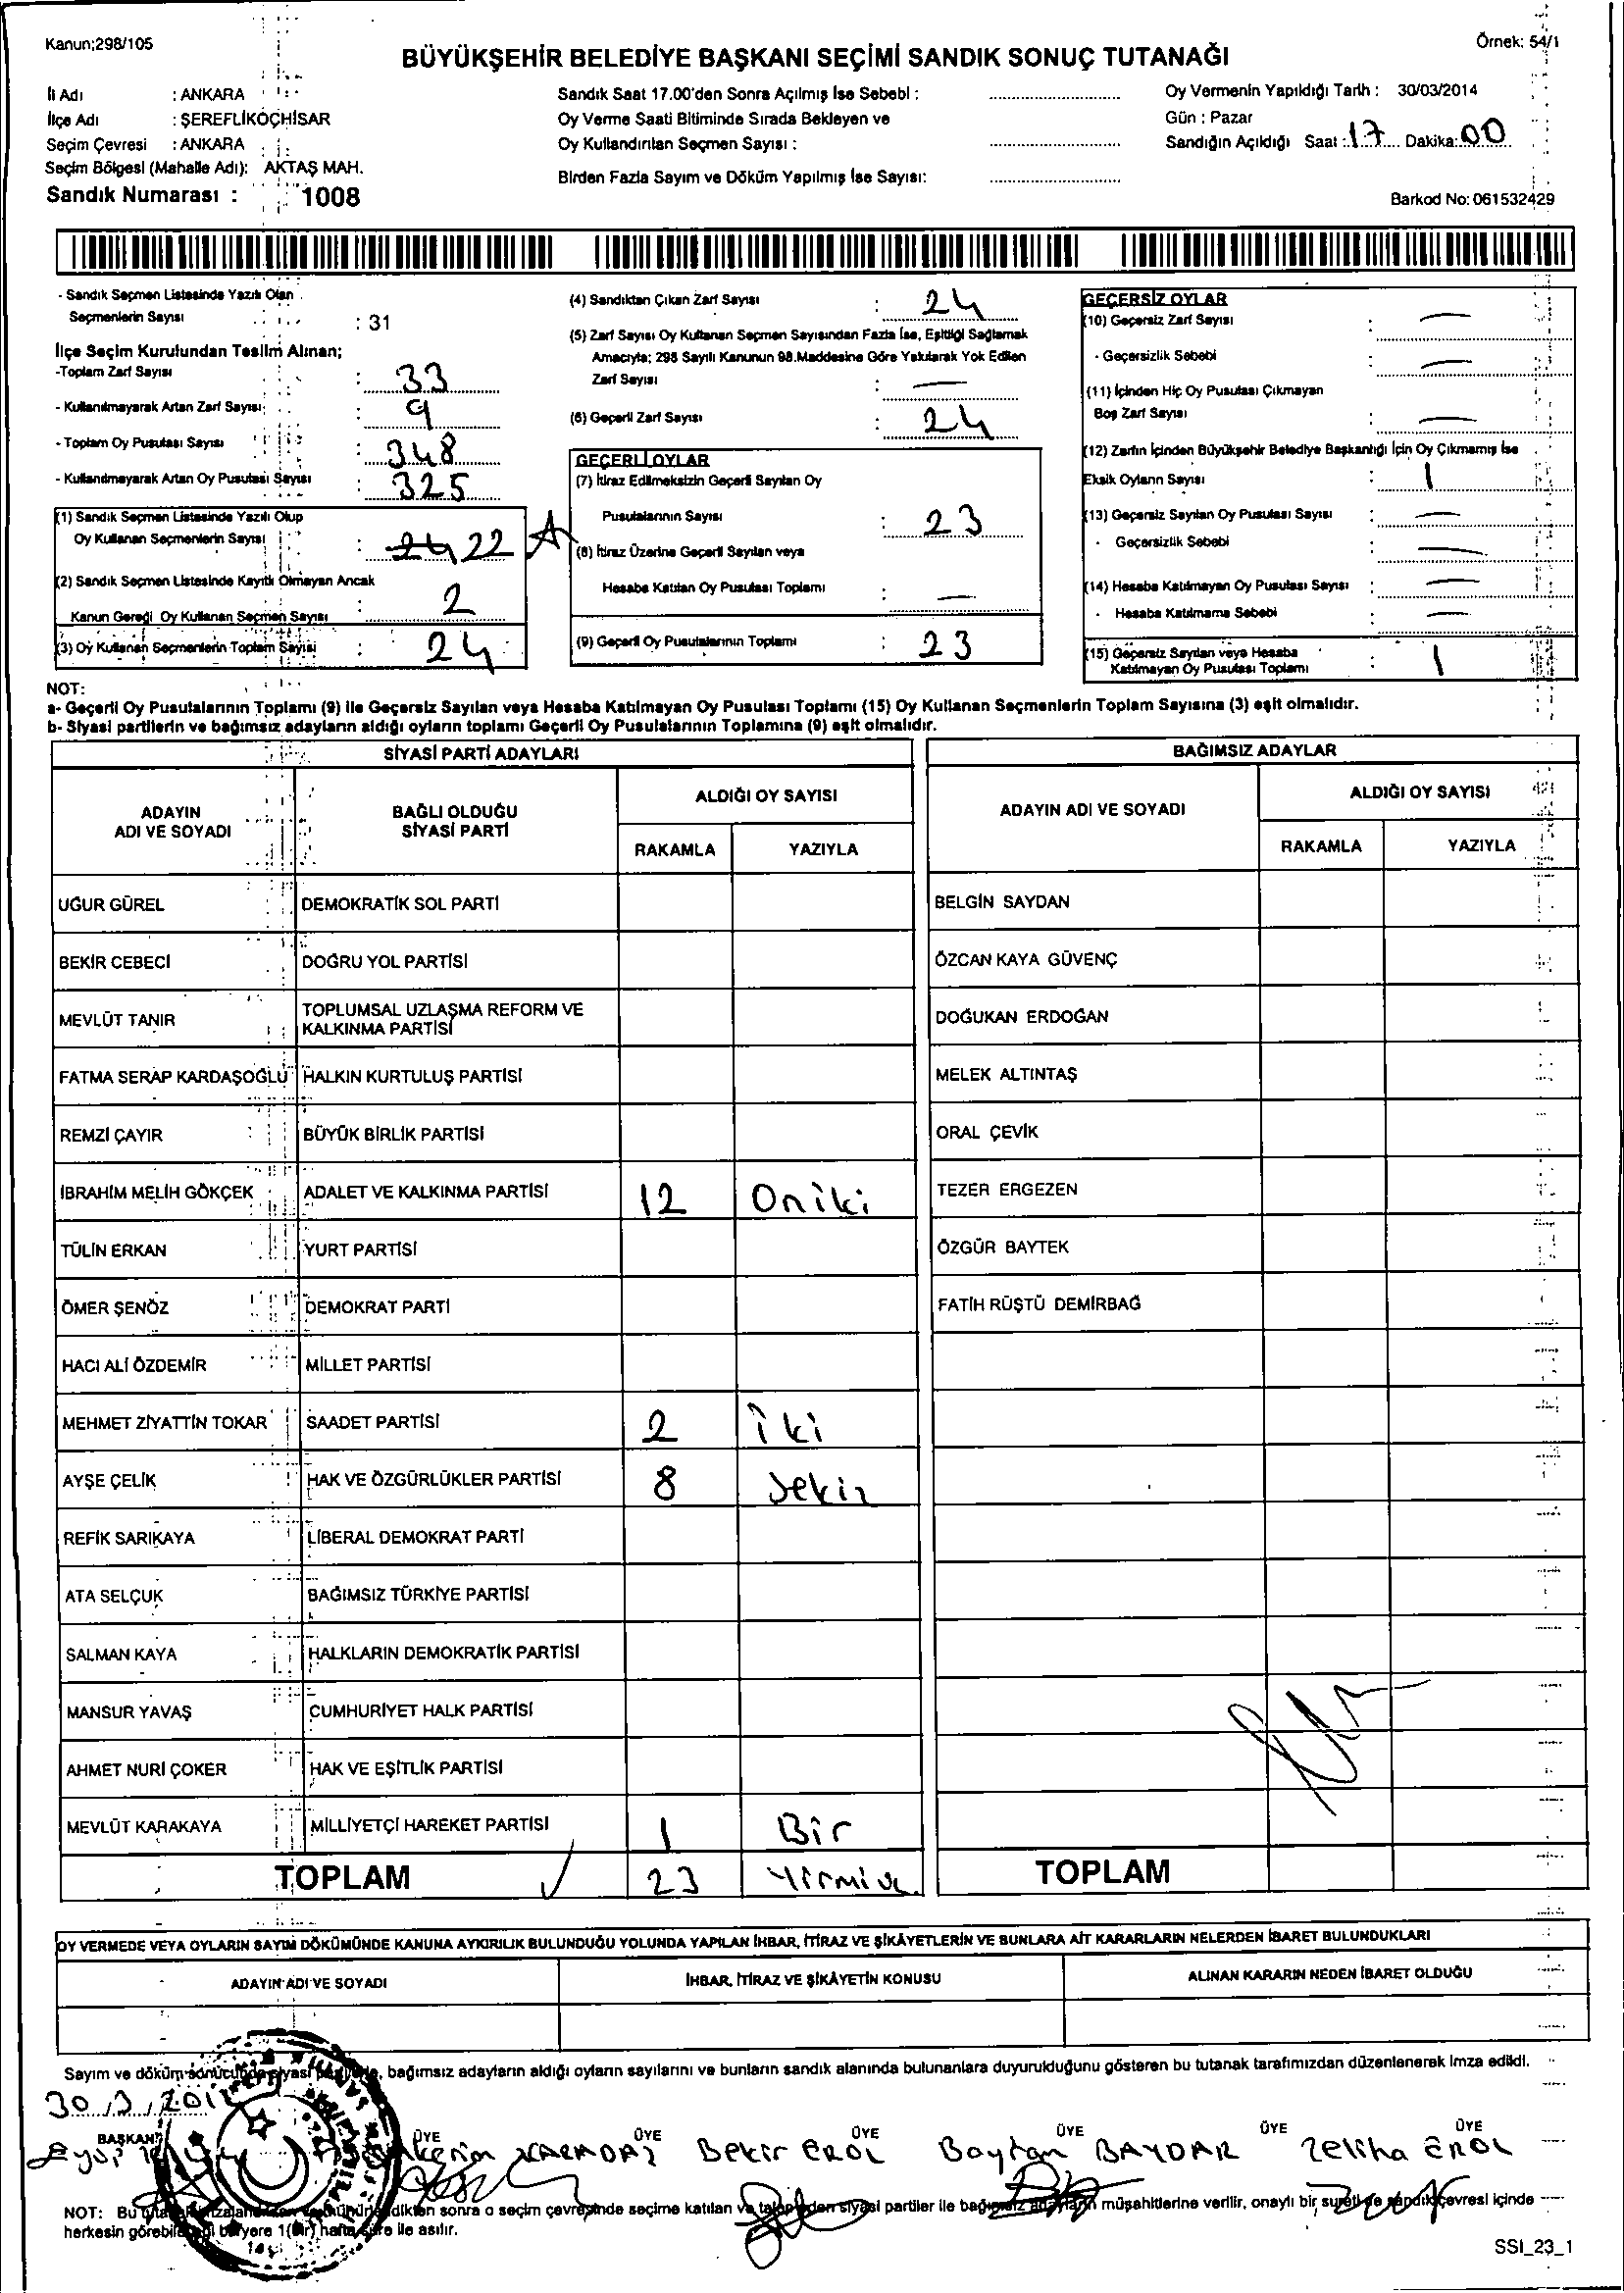 Kanun;298/105
Örnek: 54/1
BÜYÜKŞEHİR BELEDİYE BAŞKANI SEÇİMİ SANDIK SONUÇ TUTANAĞI
İl Adı : ANKARA
İlçe Adı : ŞEREFLİKOÇHİSAR
Seçim Çevresi : ANKARA
Seçim Bölgesi (Mahalle Adı): AKTAŞ MAH.
Sandık Numarası : 1008
Sandık Saat 17.00'den Sonra Açılmış İse Sebebi :
Oy Verme Saati Bitiminde Sırada Bekleyen ve
Oy Kullandırılan Seçmen Sayısı :
Birden Fazla Sayım ve Döküm Yapılmış İse Sayısı:
Oy Vermenin Yapıldığı Tarih : 30/03/2014
Gün : Pazar
Sandığın Açıldığı Saat : 17 Dakika: 00
Barkod No: 061532429
- Sandık Seçmen Listesinde Yazılı Olan
Seçmenlerin Sayısı : 31
İlçe Seçim Kurulundan Teslim Alınan;
-Toplam Zarf Sayısı : 33
- Kullanılmayarak Artan Zarf Sayısı: 9
- Toplam Oy Pusulası Sayısı : 348
- Kullanılmayarak Artan Oy Pusulası Sayısı : 325
(1) Sandık Seçmen Listesinde Yazılı Olup
Oy Kullanan Seçmenlerin Sayısı : 24 22
(2) Sandık Seçmen Listesinde Kayıtlı Olmayan Ancak
Kanun Gereği Oy Kullanan Seçmen Sayısı : 2
(3) Oy Kullanan Seçmenlerin Toplam Sayısı : 24
(4) Sandıktan Çıkan Zarf Sayısı : 24
(5) Zarf Sayısı Oy Kullanan Seçmen Sayısından Fazla İse, Eşitliği Sağlamak
Amacıyla; 298 Sayılı Kanunun 98.Maddesine Göre Yakılarak Yok Edilen
Zarf Sayısı : —
(6) Geçerli Zarf Sayısı : 24
GEÇERLİ OYLAR
(7) İtiraz Edilmeksizin Geçerli Sayılan Oy
Pusulalarının Sayısı : 23
(8) İtiraz Üzerine Geçerli Sayılan veya
Hesaba Katılan Oy Pusulası Toplamı : —
(9) Geçerli Oy Pusulalarının Toplamı : 23
GEÇERSİZ OYLAR
(10) Geçersiz Zarf Sayısı : —
- Geçersizlik Sebebi : —
(11) İçinden Hiç Oy Pusulası Çıkmayan
Boş Zarf Sayısı : —
(12) Zarfın İçinden Büyükşehir Belediye Başkanlığı İçin Oy Çıkmamış İse
Eksik Oyların Sayısı : 1
(13) Geçersiz Sayılan Oy Pusulası Sayısı : —
- Geçersizlik Sebebi : —
(14) Hesaba Katılmayan Oy Pusulası Sayısı : —
- Hesaba Katılmama Sebebi : —
(15) Geçersiz Sayılan veya Hesaba
Katılmayan Oy Pusulası Toplamı : 1
NOT:
a- Geçerli Oy Pusulalarının Toplamı (9) ile Geçersiz Sayılan veya Hesaba Katılmayan Oy Pusulası Toplamı (15) Oy Kullanan Seçmenlerin Toplam Sayısına (3) eşit olmalıdır.
b- Siyasi partilerin ve bağımsız adayların aldığı oyların toplamı Geçerli Oy Pusulalarının Toplamına (9) eşit olmalıdır.
SİYASİ PARTİ ADAYLARI
ADAYIN ADI VE SOYADI
BAĞLI OLDUĞU SİYASİ PARTİ
ALDIĞI OY SAYISI
RAKAMLA YAZIYLA
UĞUR GÜREL DEMOKRATİK SOL PARTİ
BEKİR CEBECİ DOĞRU YOL PARTİSİ
MEVLÜT TANIR TOPLUMSAL UZLAŞMA REFORM VE
KALKINMA PARTİSİ
FATMA SERAP KARDAŞOĞLU HALKIN KURTULUŞ PARTİSİ
REMZİ ÇAYIR BÜYÜK BİRLİK PARTİSİ
İBRAHİM MELİH GÖKÇEK ADALET VE KALKINMA PARTİSİ 12 Oniki
TÜLİN ERKAN YURT PARTİSİ
ÖMER ŞENÖZ DEMOKRAT PARTİ
HACI ALİ ÖZDEMİR MİLLET PARTİSİ
MEHMET ZİYATTİN TOKAR SAADET PARTİSİ 2 iki
AYŞE ÇELİK HAK VE ÖZGÜRLÜKLER PARTİSİ 8 sekiz
REFİK SARIKAYA LİBERAL DEMOKRAT PARTİ
ATA SELÇUK BAĞIMSIZ TÜRKİYE PARTİSİ
SALMAN KAYA HALKLARIN DEMOKRATİK PARTİSİ
MANSUR YAVAŞ CUMHURİYET HALK PARTİSİ
AHMET NURİ ÇOKER HAK VE EŞİTLİK PARTİSİ
MEVLÜT KARAKAYA MİLLİYETÇİ HAREKET PARTİSİ 1 Bir
TOPLAM 23
BAĞIMSIZ ADAYLAR
ADAYIN ADI VE SOYADI
ALDIĞI OY SAYISI
RAKAMLA YAZIYLA
BELGİN SAYDAN
ÖZCAN KAYA GÜVENÇ
DOĞUKAN ERDOĞAN
MELEK ALTINTAŞ
ORAL ÇEVİK
TEZER ERGEZEN
ÖZGÜR BAYTEK
FATİH RÜŞTÜ DEMİRBAĞ
TOPLAM
OY VERMEDE VEYA OYLARIN SAYIM DÖKÜMÜNDE KANUNA AYKIRILIK BULUNDUĞU YOLUNDA YAPILAN İHBAR, İTİRAZ VE ŞİKÂYETLERİN VE BUNLARA AİT KARARLARIN NELERDEN İBARET BULUNDUKLARI
ADAYIN ADI VE SOYADI İHBAR, İTİRAZ VE ŞİKÂYETİN KONUSU ALINAN KARARIN NEDEN İBARET OLDUĞU
Sayım ve döküm sonucunda siyasi bağımsız adayların aldığı oyların sayılarını ve bunların sandık alanında bulunanlara duyurulduğunu gösteren bu tutanak tarafımızdan düzenlenerek imza edildi.
30/3/201
BAŞKAN ÜYE ÜYE ÜYE ÜYE ÜYE ÜYE
Eyüp Kerim KARADAŞ Bekir EROL Baytan BAYDAR Zeliha EROL
NOT: Bu sonra o seçim çevresinde seçime katılan ve siyasi partiler ile bağımsız adayların müşahitlerine verilir, onaylı bir sureti de sandık çevresi içinde
herkesin görebileceği bir yere 1(Bir) hafta süre ile asılır.
SSI_23_1